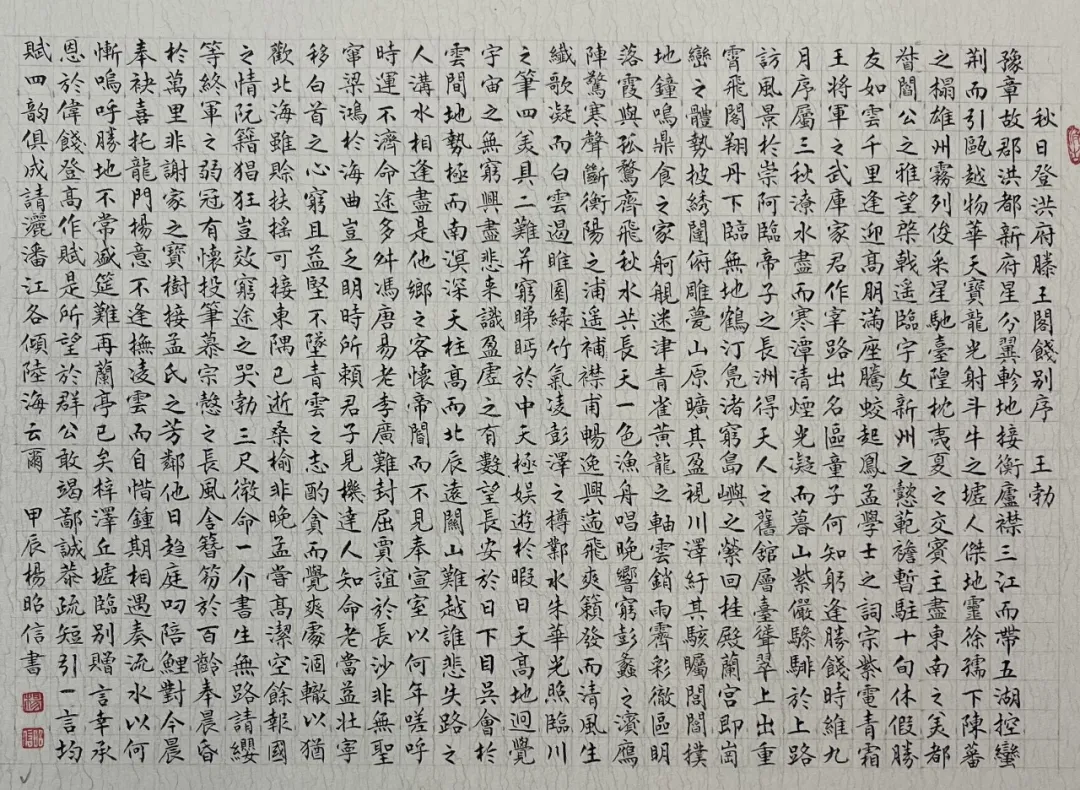 秋日登洪府滕王閣餞别序 王勃
豫章故郡洪都新府星分翼軫地接衡廬襟三江而帶五湖控蠻
荆而引甌越物華天寶龍光射斗牛之墟人傑地靈徐孺下陳蕃
之榻雄州霧列俊采星馳臺隍枕夷夏之交賓主盡東南之美都
督閻公之雅望棨戟遥臨宇文新州之懿範襜暫駐十旬休假勝
友如雲千里逢迎髙朋滿座騰蛟起鳳孟學士之詞宗紫電青霜
王將軍之武庫家君作宰路出名區童子何知躬逢勝餞時維九
月序屬三秋潦水盡而寒潭清煙光凝而暮山紫儼驂騑於上路
訪風景於崇阿臨帝子之長洲得天人之舊舘層臺聳翠上出重
霄飛閣翔丹下臨無地鶴汀鳧渚窮島嶼之縈回桂殿蘭宫即崗
巒之體勢披綉闥俯雕甍山原曠其盈視川澤紆其駭矚閭閻撲
地鐘鳴鼎食之家舸艦迷津青雀黄龍之軸雲銷雨霽彩徹區明
落霞與孤鶩齊飛秋水共長天一色漁舟唱晚響窮彭蠡之濱鴈
陣驚寒聲斷衡陽之浦遥補襟甫暢逸興遄飛爽籟發而清風生
纖歌凝而白雲遏睢園緑竹氣凌彭澤之樽鄴水朱華光照臨川
之筆四美具二難并窮睇眄於中天極娱遊於暇日天髙地迥覺
宇宙之無窮興盡悲来識盈虚之有數望長安於日下目吴會於
雲間地勢極而南溟深天柱髙而北辰遠關山難越誰悲失路之
人溝水相逢盡是他鄉之客懷帝閽而不見奉宣室以何年嗟呼
時運不濟命途多舛馮唐易老李廣難封屈賈誼於長沙非無聖
窜梁鴻於海曲豈乏明時所賴君子見機達人知命老當益壯寧
移白首之心窮且益堅不墜青雲之志酌貪而覺爽處涸轍以猶
歡北海雖賒扶摇可接東隅已逝桑榆非晚孟嘗髙潔空餘報國
之情阮籍猖狂豈效窮途之哭勃三尺微命一介書生無路請纓
等終軍之弱冠有懷投筆慕宗慤之長風舍簪笏於百齡奉晨昏
於萬里非謝家之寶樹接孟氏之芳鄰他日趋庭叨陪鯉對今晨
奉袂喜托龍門楊意不逢撫凌雲而自惜鍾期相遇奏流水以何
慚嗚呼勝地不常盛筵難再蘭亭已矣梓澤丘墟臨别贈言幸承
恩於偉餞登髙作賦是所望於群公敢竭鄙誠恭疏短引一言均
賦四韵俱成請灑潘江各傾陸海云爾 甲辰楊昭信書